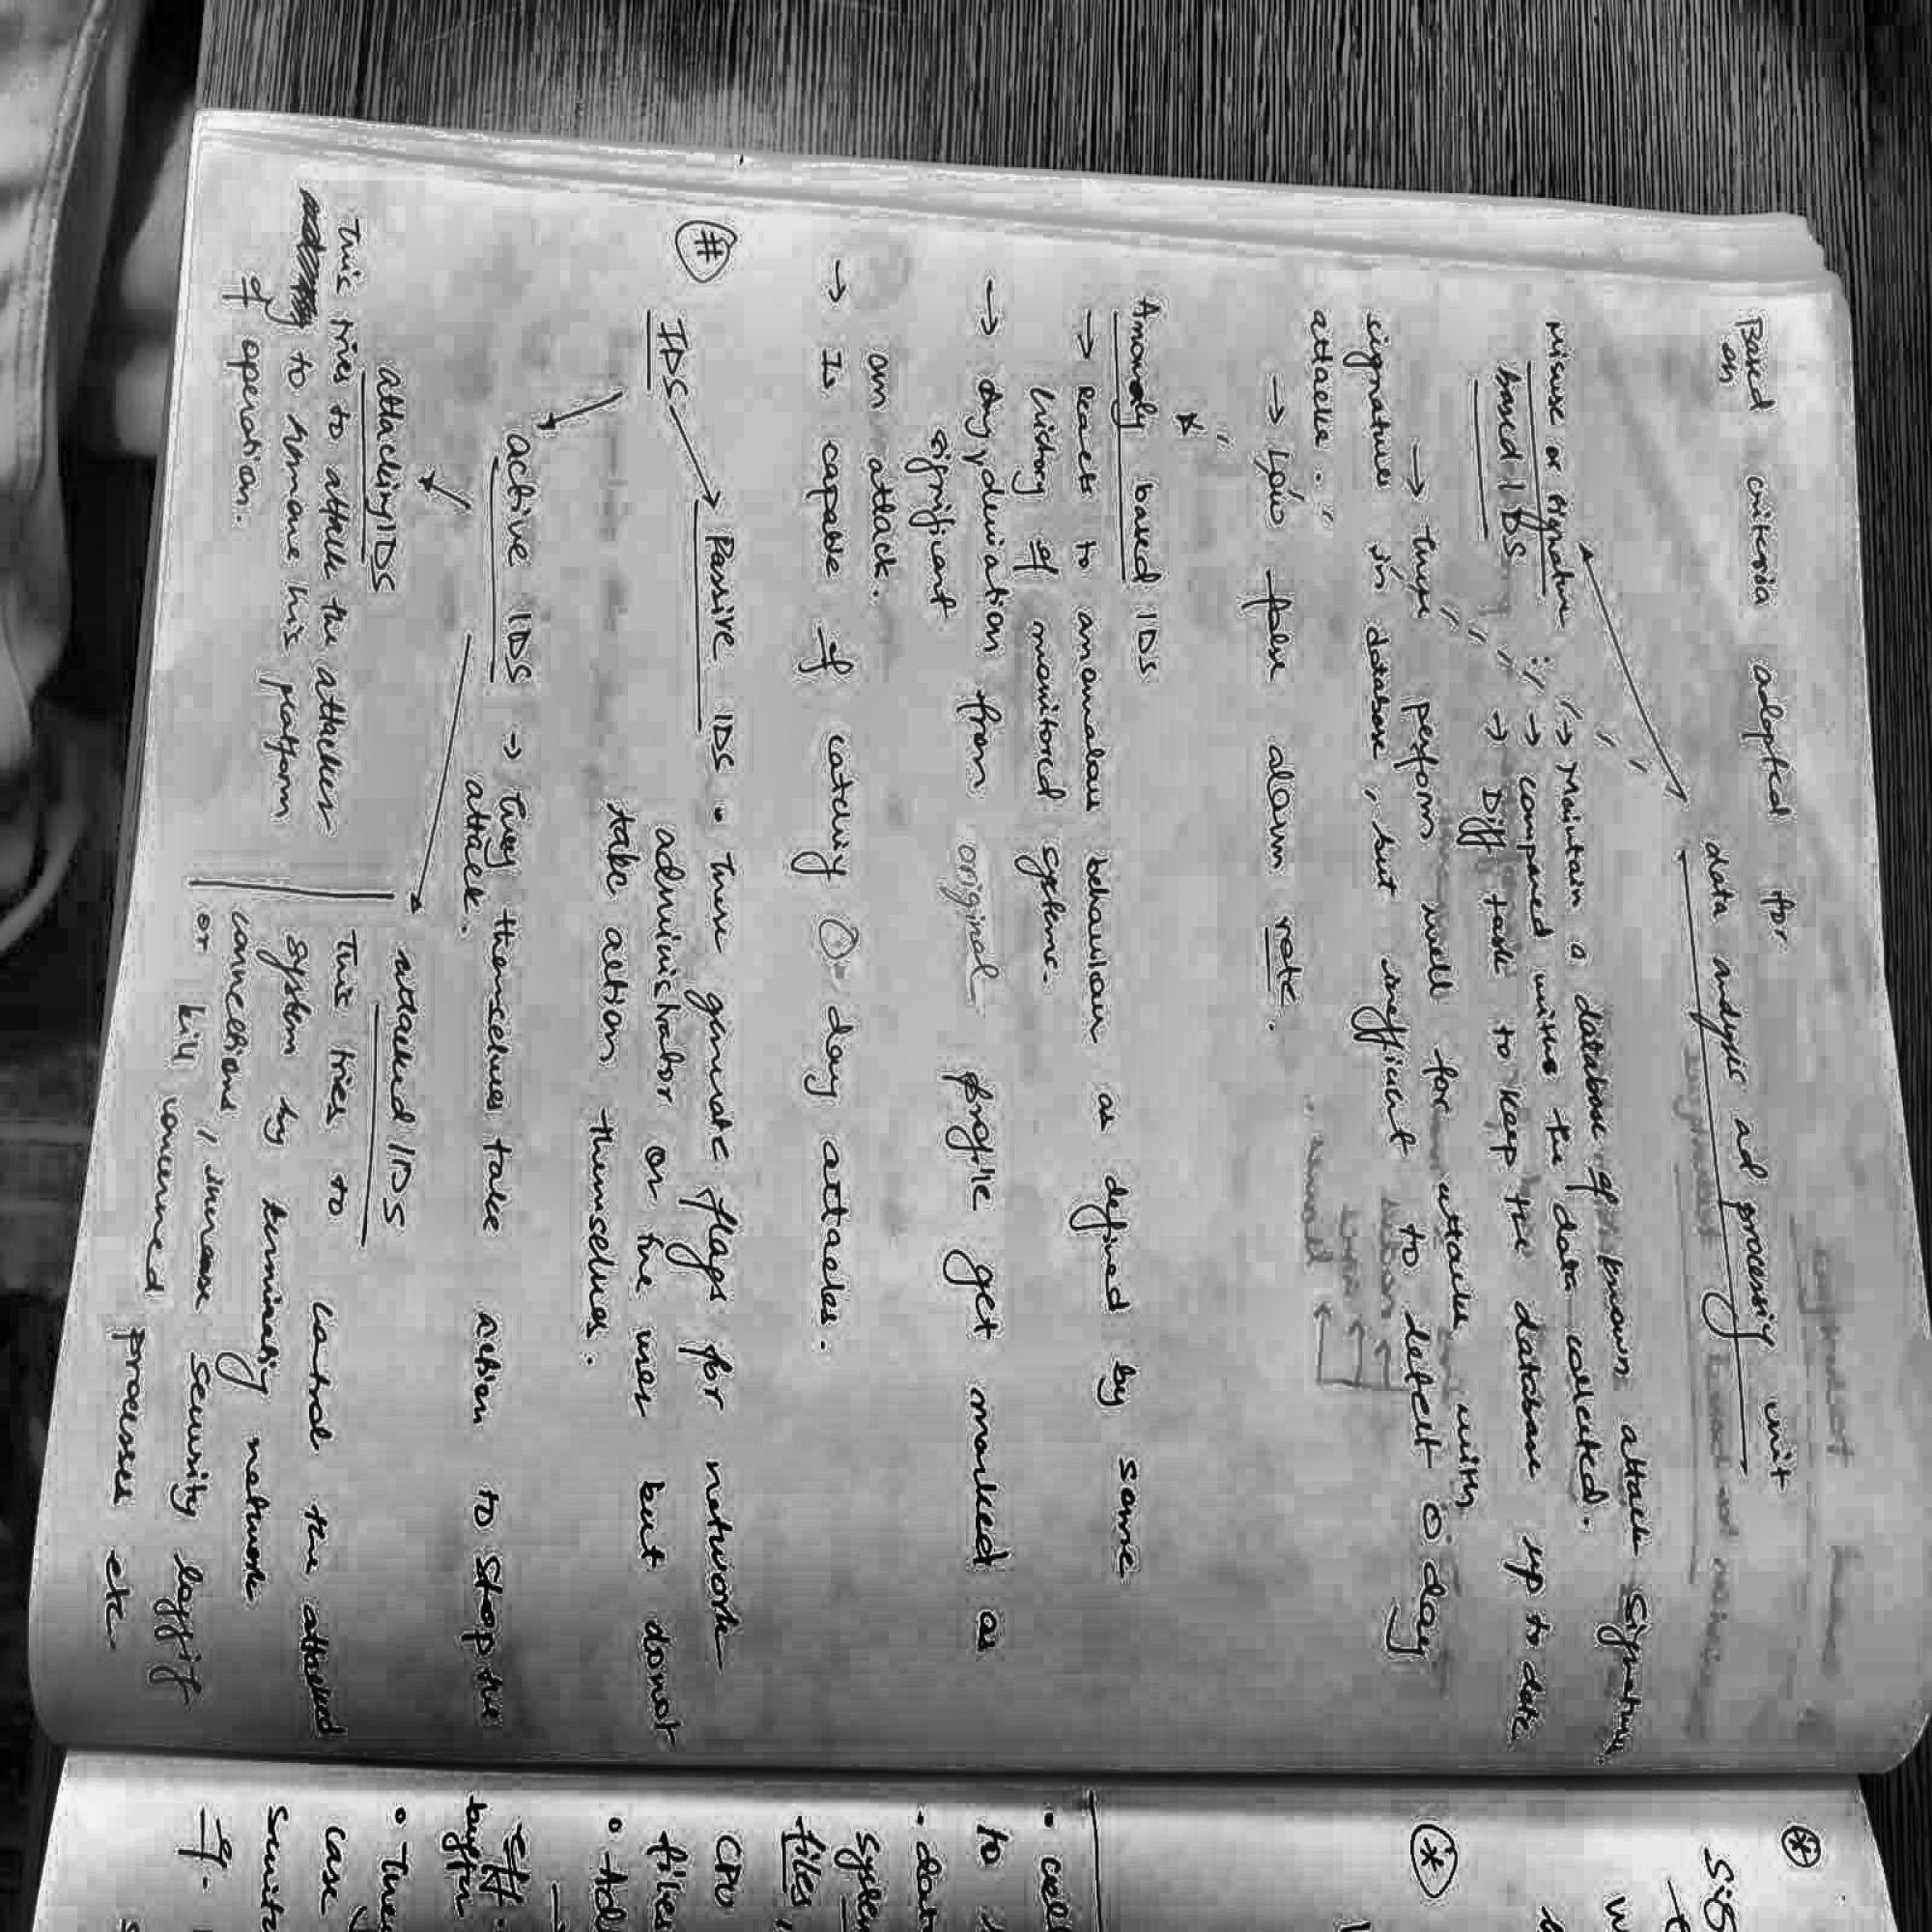 Based criteria adopted for
on data analysis ad processing unit
Misuse or signature
based IDS
→ Maintain a database of known attack signature
→ compared withe the data collected.
→ Diff task to keep the database up to date
→ These perform well for attacks with
signatures in database, but inefficient to detect 0 day
attacks.
→ Low false alarm rate.
Anomaly based IDS
→ Reacts to anomalous behaviour as defined by some
history of monitored systems.
→ Any deviation from original profile get marked as
significant
an attack.
→ Is capable of catching 0-day attacks.
#
IDS
Passive IDS • These generate flags for network
administrator or the user but donot
take action themselves.
active IDS → They themselves take action to stop the
attack.
attacking IDS
This tries to attack the attacker
to remove his platform
of operation.
attacked IDS
This tries to control the attacked
system by terminating network
connections, increase security
or kill concerned processes etc.
*
*
• 
to
•
System
files,
CPU
files
•
• 
case